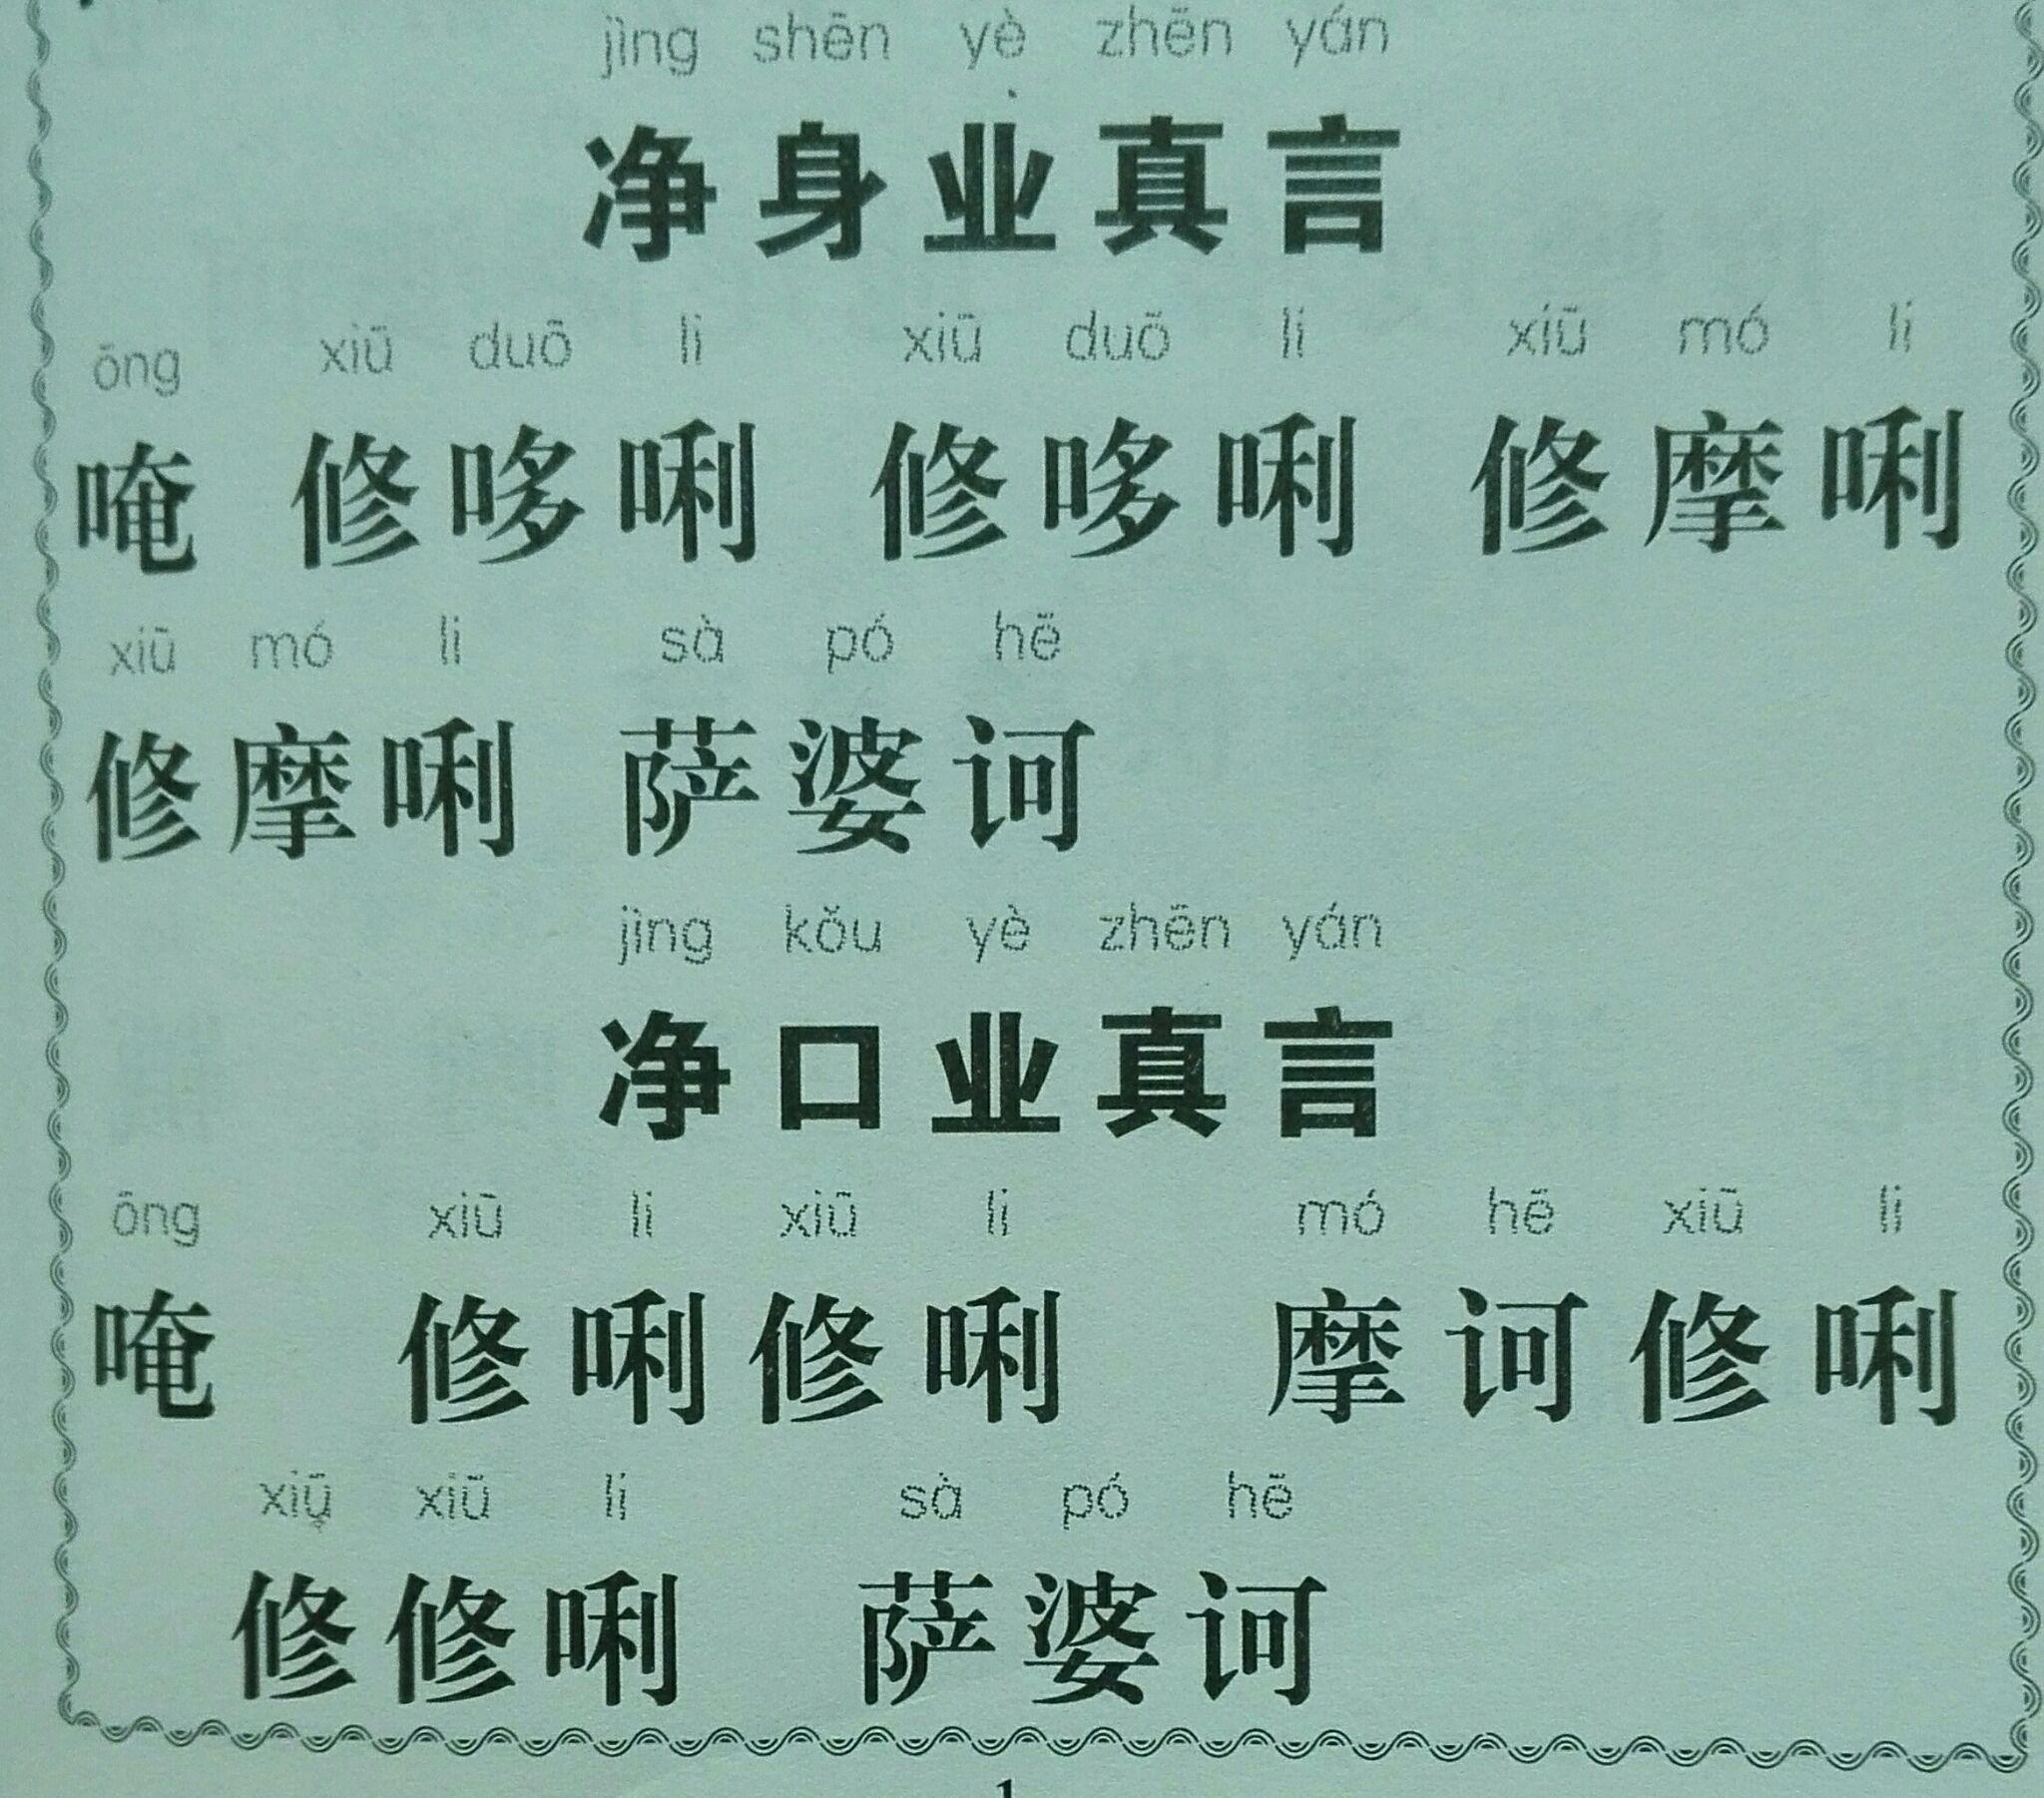 jìng shēn yè zhēn yán
净身业真言
ōng xiū duō li xiū duō li xiū mó li
唵 修哆唎 修哆唎 修摩唎
xiū mó li sà pó hē
修摩唎 萨婆诃
jìng kǒu yè zhēn yán
净口业真言
ōng xiū li xiū li mó hē xiū li
唵 修唎修唎 摩诃修唎
xiū xiū li sà pó hē
修修唎 萨婆诃
1